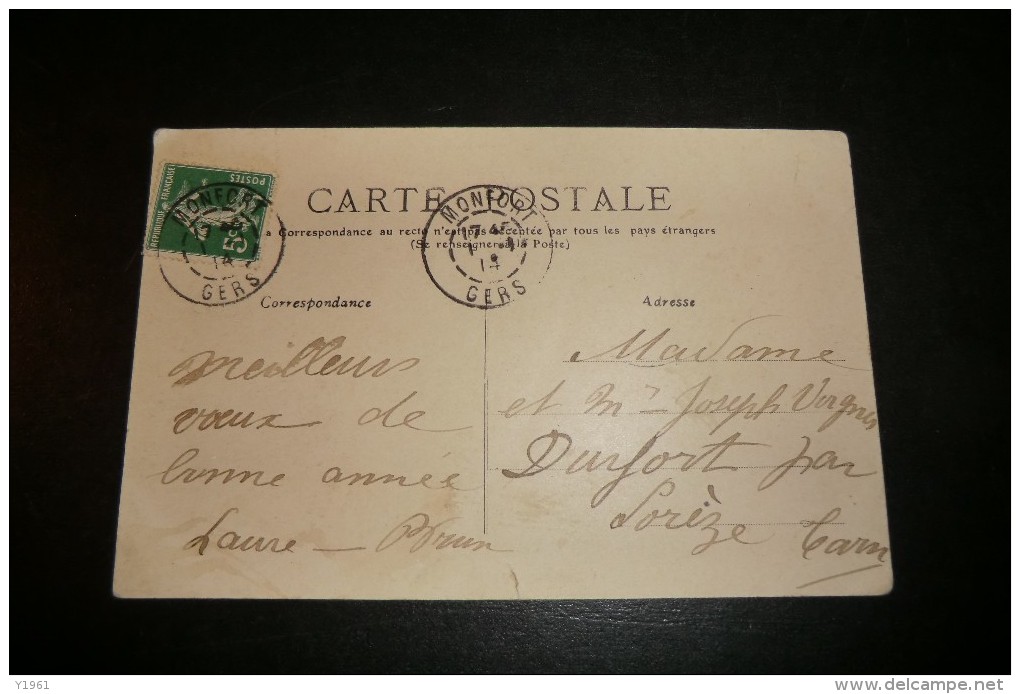 POSTES
RÉPUBLIQUE FRANÇAISE
5c
MONFORT
14
GERS
CARTE POSTALE
MONFORT
17 45
14
GERS
a Correspondance au recto n'est pas acceptée par tous les pays étrangers
(Se renseigner à la Poste)
Correspondance
Adresse
meilleurs
vœux de
bonne année
Laure — Brun
Madame
et Mr Joseph Vergnes
Durfort par
Sorèze Tarn
Y1961
delcampe.net